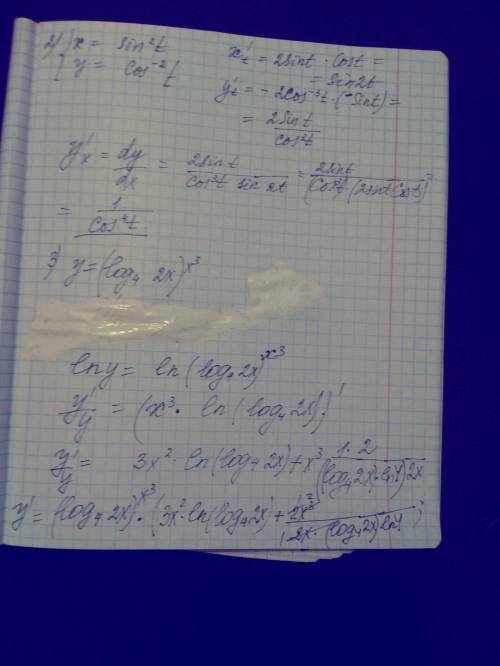 2) { x = sin²t
y = cos⁻²t
x't = 2sint · cost =
= sin2t
y't = -2cos⁻³t · (-sint) =
= 2sint / cos³t
y'x = dy/dx = 2sint / cos³t sin2t = 2sint / (cos³t)(2sintcost) =
= 1 / cos⁴t
3) y = (log₄ 2x)^x³
lny = ln(log₄2x)^x³
y'/y = (x³ · ln(log₄2x))'
y'/y = 3x² · ln(log₄2x) + x³ 1·2 / (log₄2x)·ln4)2x
y' = (log₄2x)^x³ · (3x²·ln(log₄2x) + 2x³ / 2x·(log₄2x)ln4)